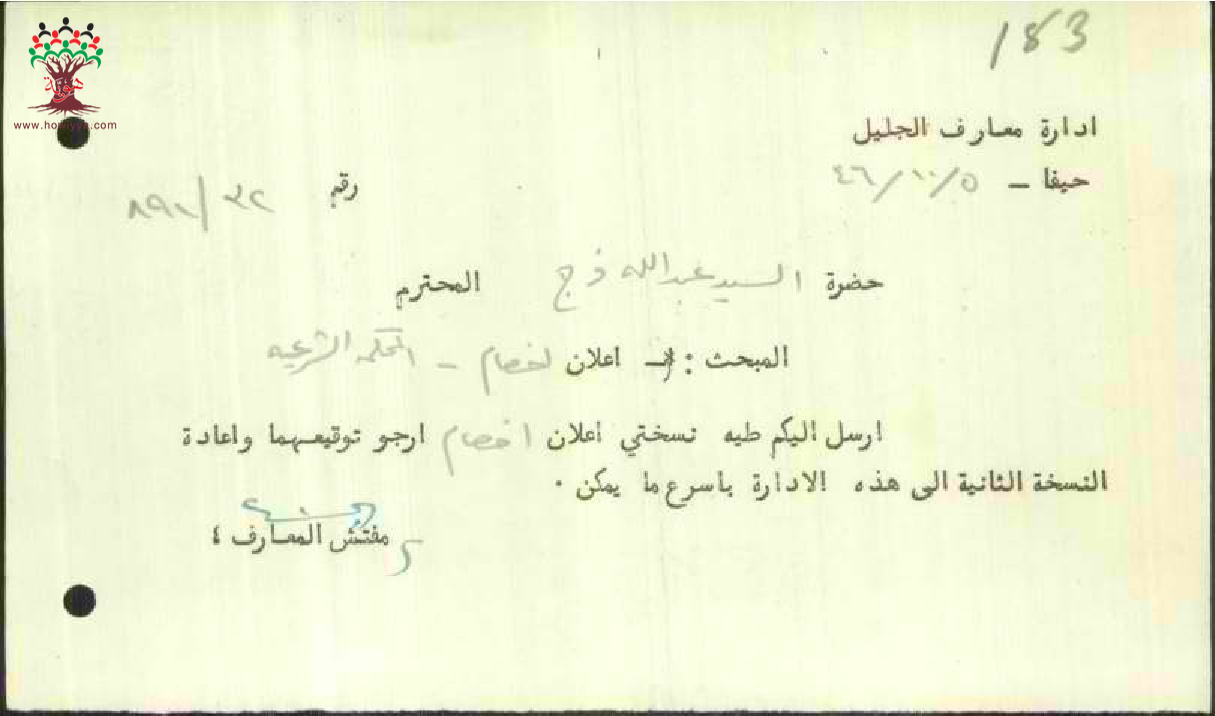 183
هوية
www.howiyya.com
ادارة معارف الجليل
حيفا – ٤٦/١٠/٥
رقم ٣٢/٨٩١
حضرة السيد عبدالله فرج المحترم
المبحث : اعلان خصام – المحكمة الشرعيه
ارسل اليكم طيه نسختي اعلان خصام ارجو توقيعهما واعادة
النسخة الثانية الى هذه الادارة باسرع ما يمكن .
مفتش المعارف ؛